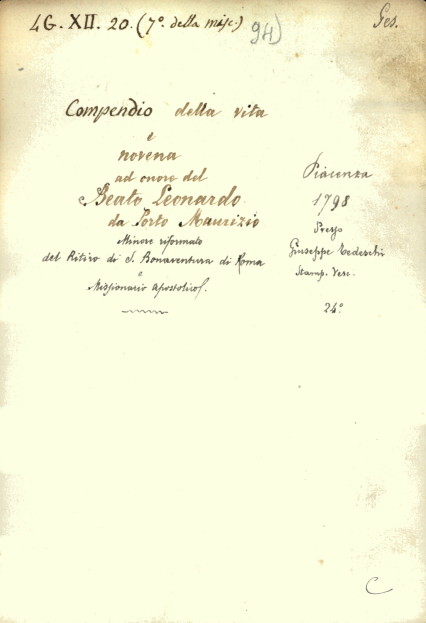 4G. XII. 20. (7º. della misc.)
94)
Ges.
Compendio della vita
e
novena
ad onore del
Beato Leonardo
da Porto Maurizio
Minore riformato
del Ritiro di S. Bonaventura di Roma
e
Missionario Apostolico.
Piacenza
1798
Presso
Giuseppe Tedeschi
Stamp. Vesc.
24º
C